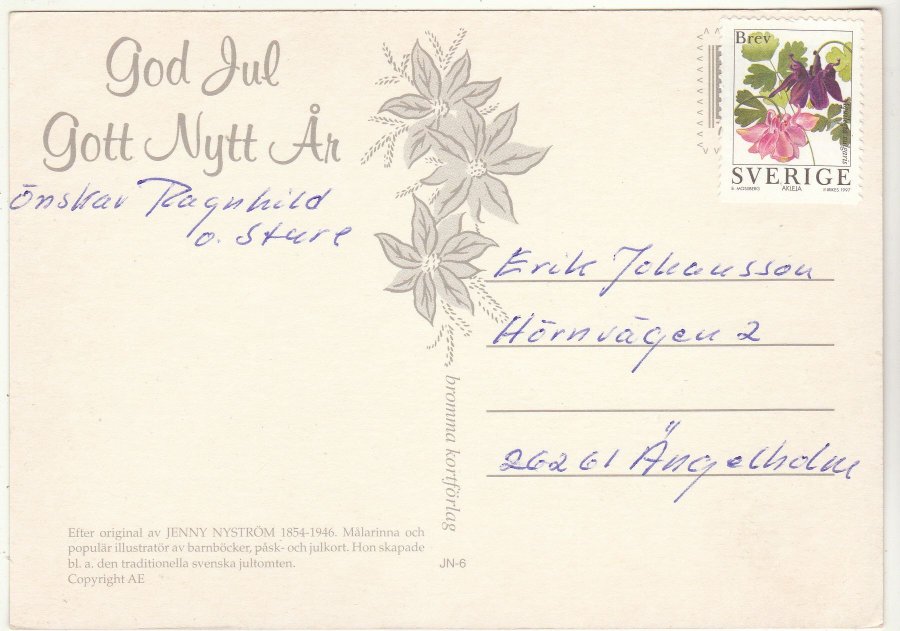 God Jul
Gott Nytt År
önskar Ragnhild
o. Sture
Brev
SVERIGE
AKLEJA
Erik Johansson
Hörnvägen 2
26261 Ängelholm
bromma kortförlag
Efter original av JENNY NYSTRÖM 1854-1946. Målarinna och
populär illustratör av barnböcker, påsk- och julkort. Hon skapade
bl. a. den traditionella svenska jultomten.
Copyright AE
JN-6